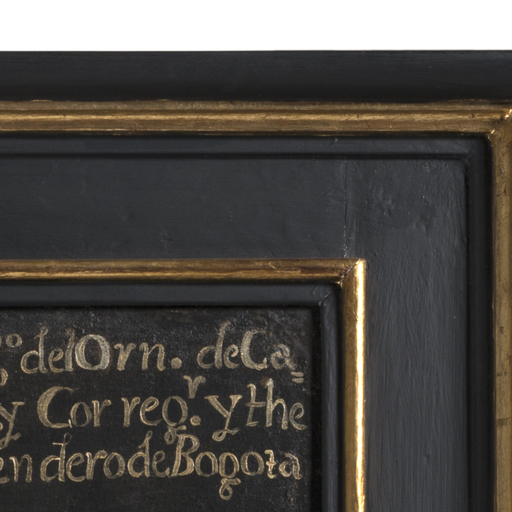 º del Orn. de Ca=
y Correg.r y the
endero de Bogota